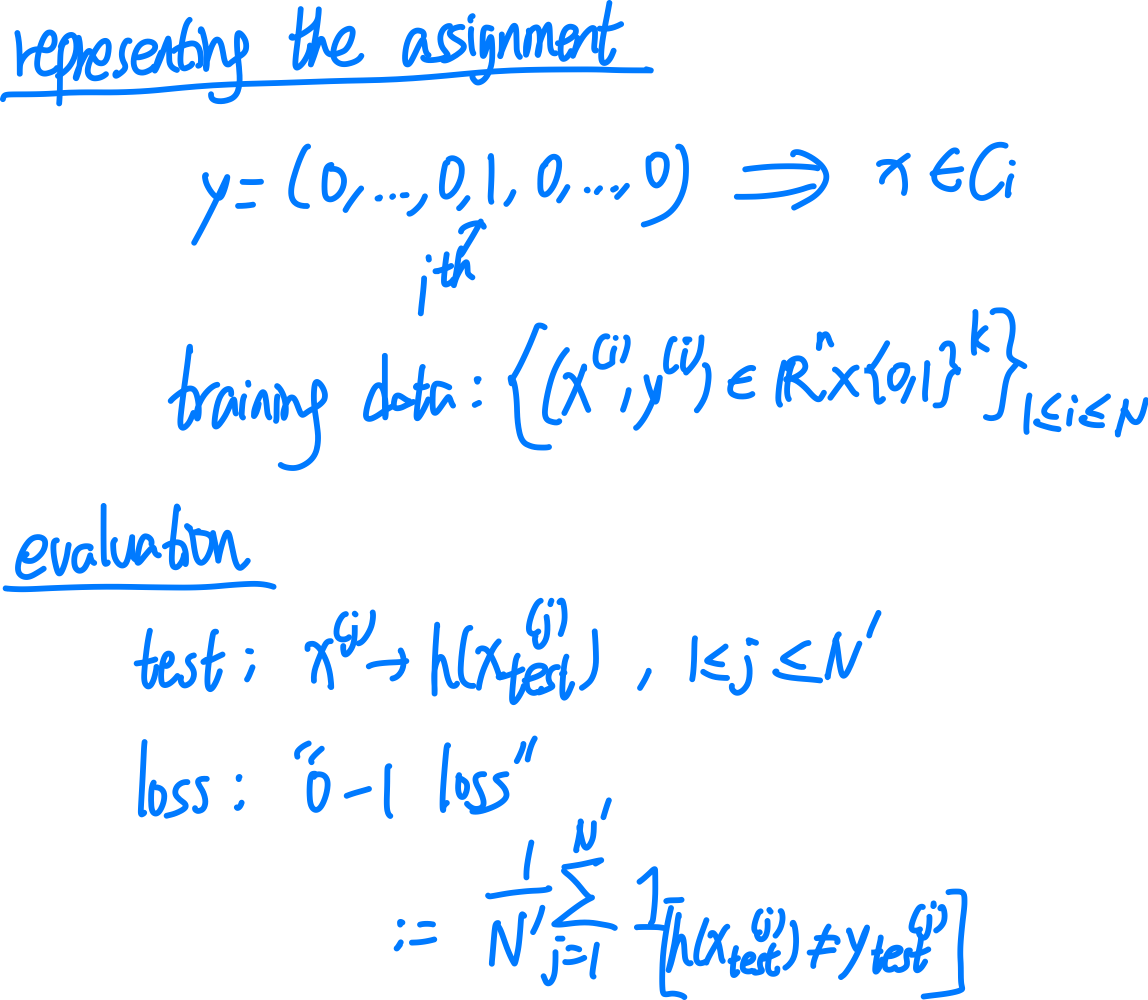 representing the assignment
y = (0, ..., 0, 1, 0, ..., 0) ⟹ x ∈ Cᵢ
iᵗʰ
training data : {(x⁽ⁱ⁾, y⁽ⁱ⁾) ∈ ℝⁿ × {0,1}ᵏ}_{1≤i≤N}
evaluation
test ; x^{(j)} → h(x_{test}^{(j)}) , 1 ≤ j ≤ N'
loss : "0-1 loss"
:= \frac{1}{N'} \sum_{j=1}^{N'} 1_{[h(x_{test}^{(j)}) ≠ y_{test}^{(j)}]}